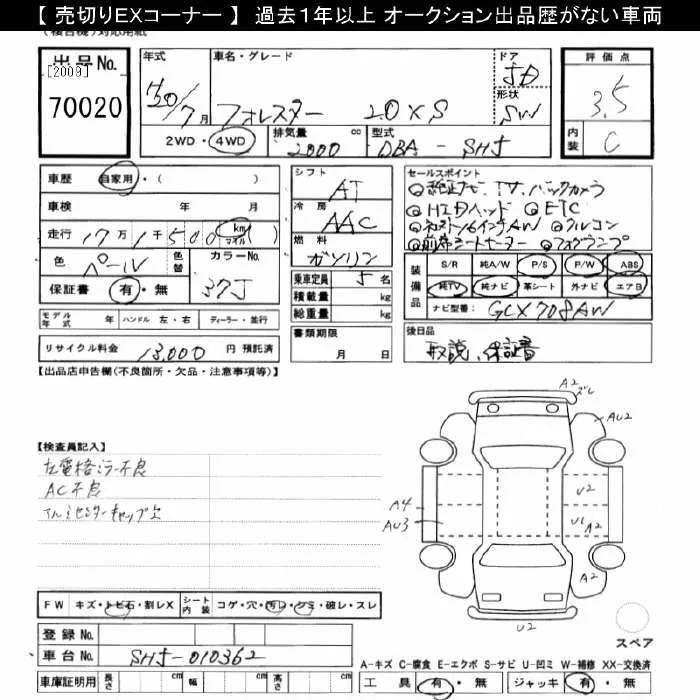 【 売切りEXコーナー 】 過去1年以上 オークション出品歴がない車両
出品No.
[2009]
70020
年式
H20/7月
車名・グレード
フォレスター 20XS
ドア
5D
形状
SW
評価点
3.5
内装
C
2WD・4WD
排気量 cc
2000
型式
DBA-SH5
車歴 自家用・( )
車検 年 月
走行 17万1千500 km マイル ( )
色 パール
色替
カラーNo.
37J
保証書 有・無
シフト
AT
冷房
AAC
燃料
ガソリン
乗車定員 5名
積載量 kg
総重量 kg
セールスポイント
◎純正ナビ、TV、バックカメラ
◎HIDヘッド ◎ETC
◎純正16インチAW ◎クルコン
◎前席シートヒーター ◎フォグランプ
装備品
S/R 純A/W P/S P/W ABS
純TV 純ナビ 革シート 外ナビ エアB
ナビ型番: GCX708AW
モデル年式 年 ハンドル 左・右 ディーラー・並行
リサイクル料金 13,000 円 預託済
書類期限
月 日
後日品
取説、保証書
【出品店申告欄(不良箇所・欠品・注意事項等)】
【検査員記入】
左電格ミラー不良
AC不良
アルミセンターキャップ欠
A2
ズレ
AU2
U2
A4
AU3
U1
A2
A2
U2
スペア
FW キズ・トビ石・割レX シート内装 コゲ・穴・汚レ・シミ・破レ・スレ
登録No.
車台No. SH5-010362
車庫証明用 長さ cm 幅 cm 高さ cm
A-キズ C-腐食 E-エクボ S-サビ U-凹ミ W-補修 XX-交換済
工具 有・無 ジャッキ 有・無